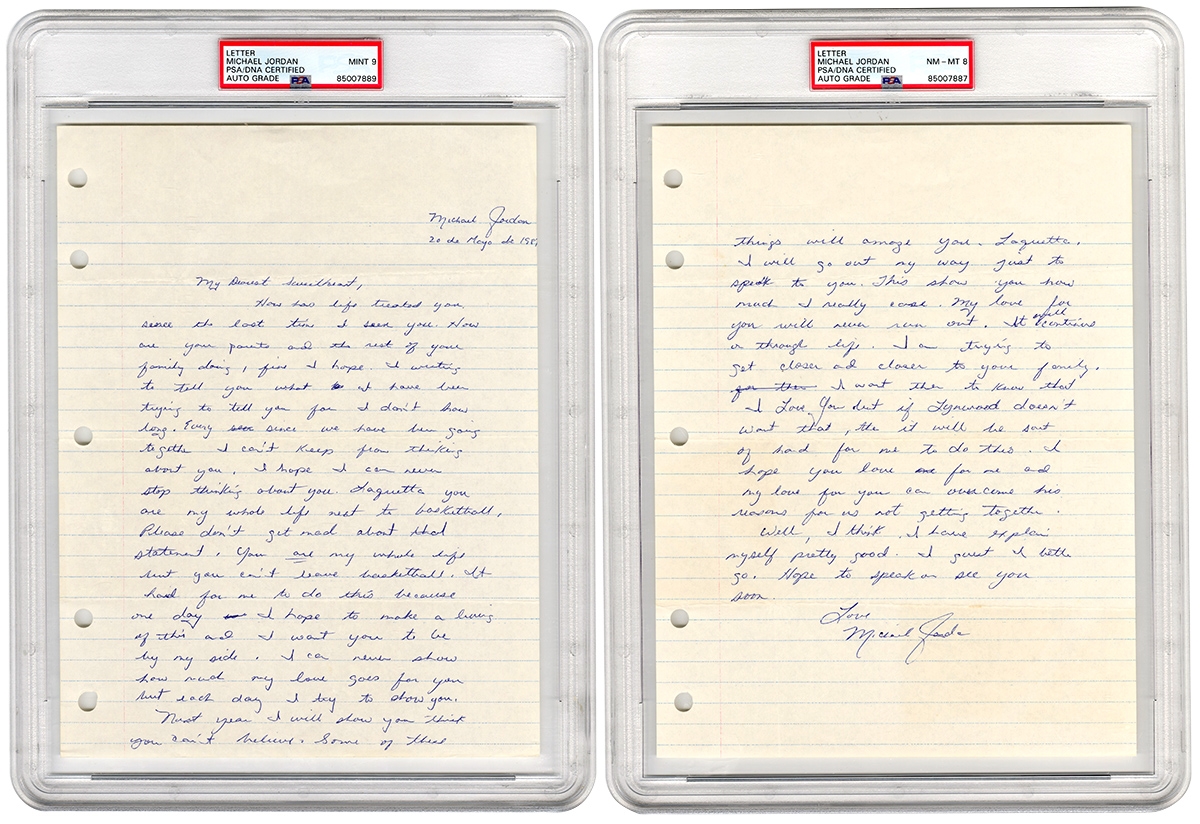 LETTER
MICHAEL JORDAN MINT 9
PSA/DNA CERTIFIED
AUTO GRADE PSA 85007889
Michael Jordan
20 de Mayo de 198
My Dearest Sweetheart,
How has life treated you
since the last time I seen you. How
are your parents and the rest of your
family doing, fine I hope. I writing
to tell you what I have been
trying to tell you for I don't how
long. Every since we have been going
together I can't keep from thinking
about you. I hope I can never
stop thinking about you. Laquetta you
are my whole life next to basketball.
Please don't get mad about that
statement. You are my whole life
but you can't leave basketball. It
hard for me to do this because
one day I hope to make a living
of this and I want you to be
by my side. I can never show
how much my love goes for you
but each day I try to show you.
Next year I will show you think
you don't believe. Some of these
LETTER
MICHAEL JORDAN NM-MT 8
PSA/DNA CERTIFIED
AUTO GRADE PSA 85007887
things will amaze you. Laquetta,
I will go out my way just to
speak to you. This show you how
much I really care. My love for
you will never run out. It will continue
on through life. I am trying to
get closer and closer to your family.
for them I want them to know that
I Love You but if Lynwood doesn't
want that, the it will be sort
of hard for me to do this. I
hope you love for me and
my love for you can overcome his
reasons for us not getting together.
Well, I think I have explain
myself pretty good. I guest I better
go. Hope to speak or see you
soon.
Love
Michael Jordan